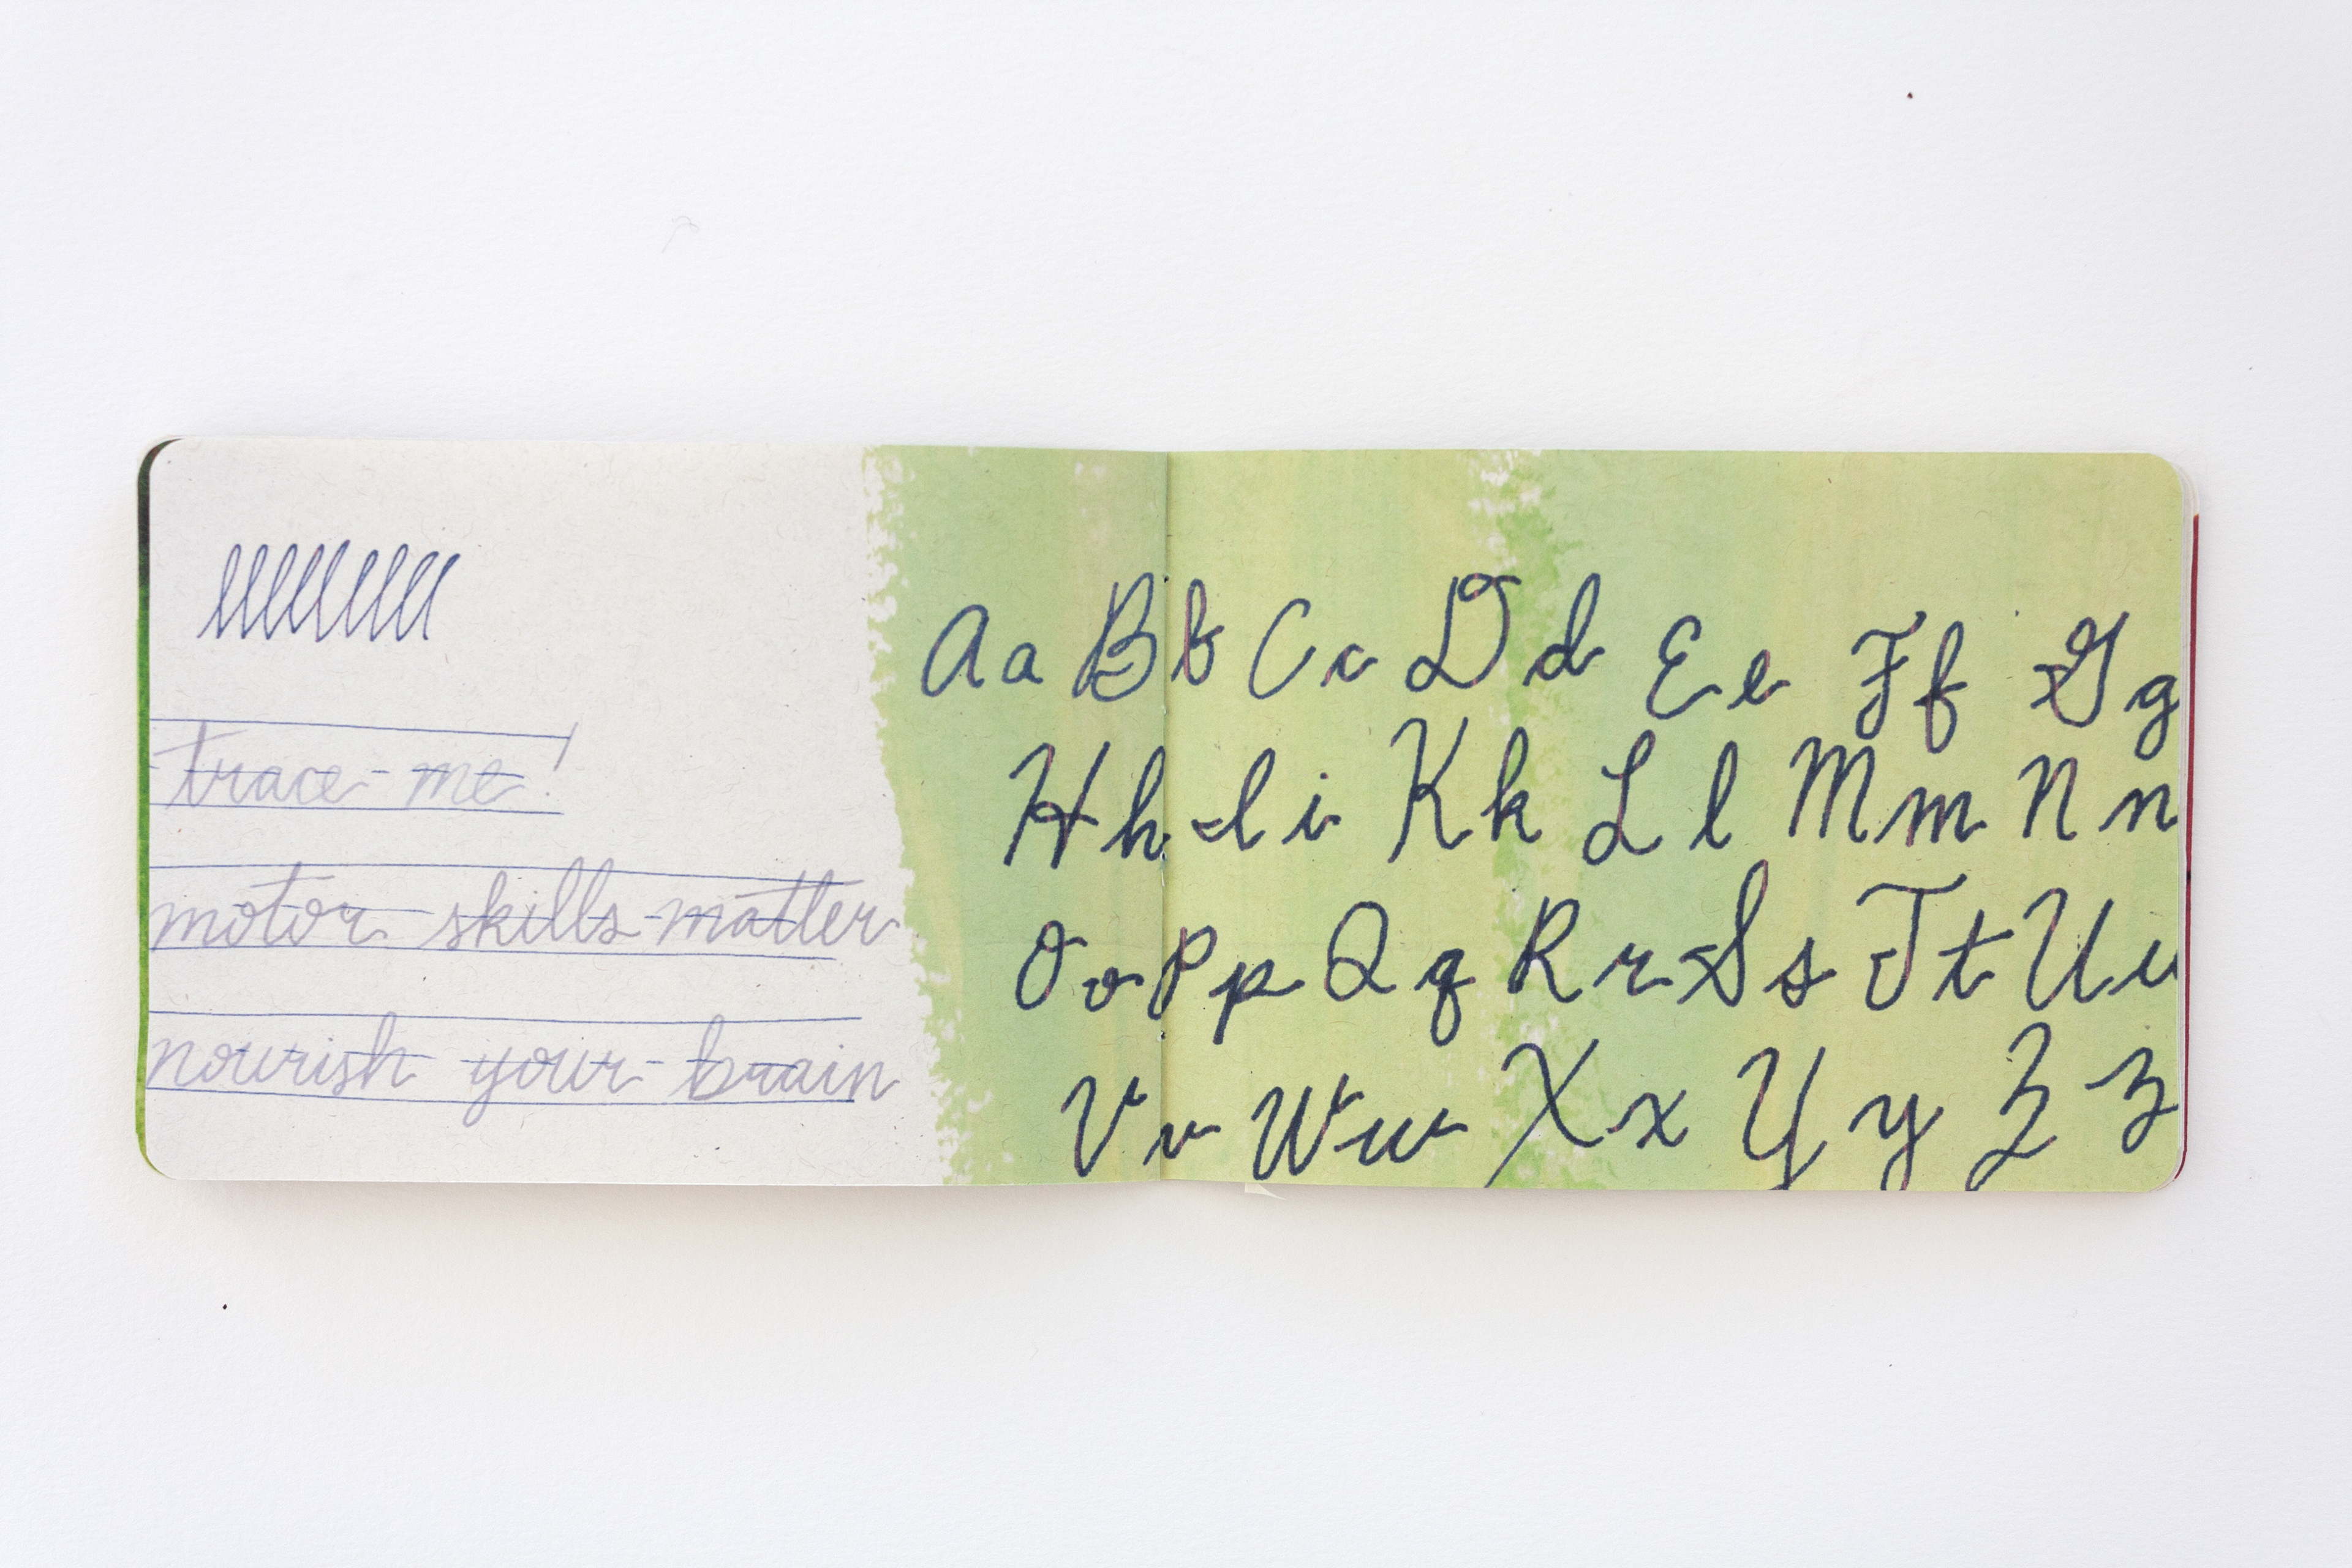 trace me!
motor skills matter
nourish your brain
Aa Bb Cc Dd Ee Ff Gg
Hh Ii Kk Ll Mm Nn
Oo Pp Qq Rr Ss Tt Uu
Vv Ww Xx Yy Zz